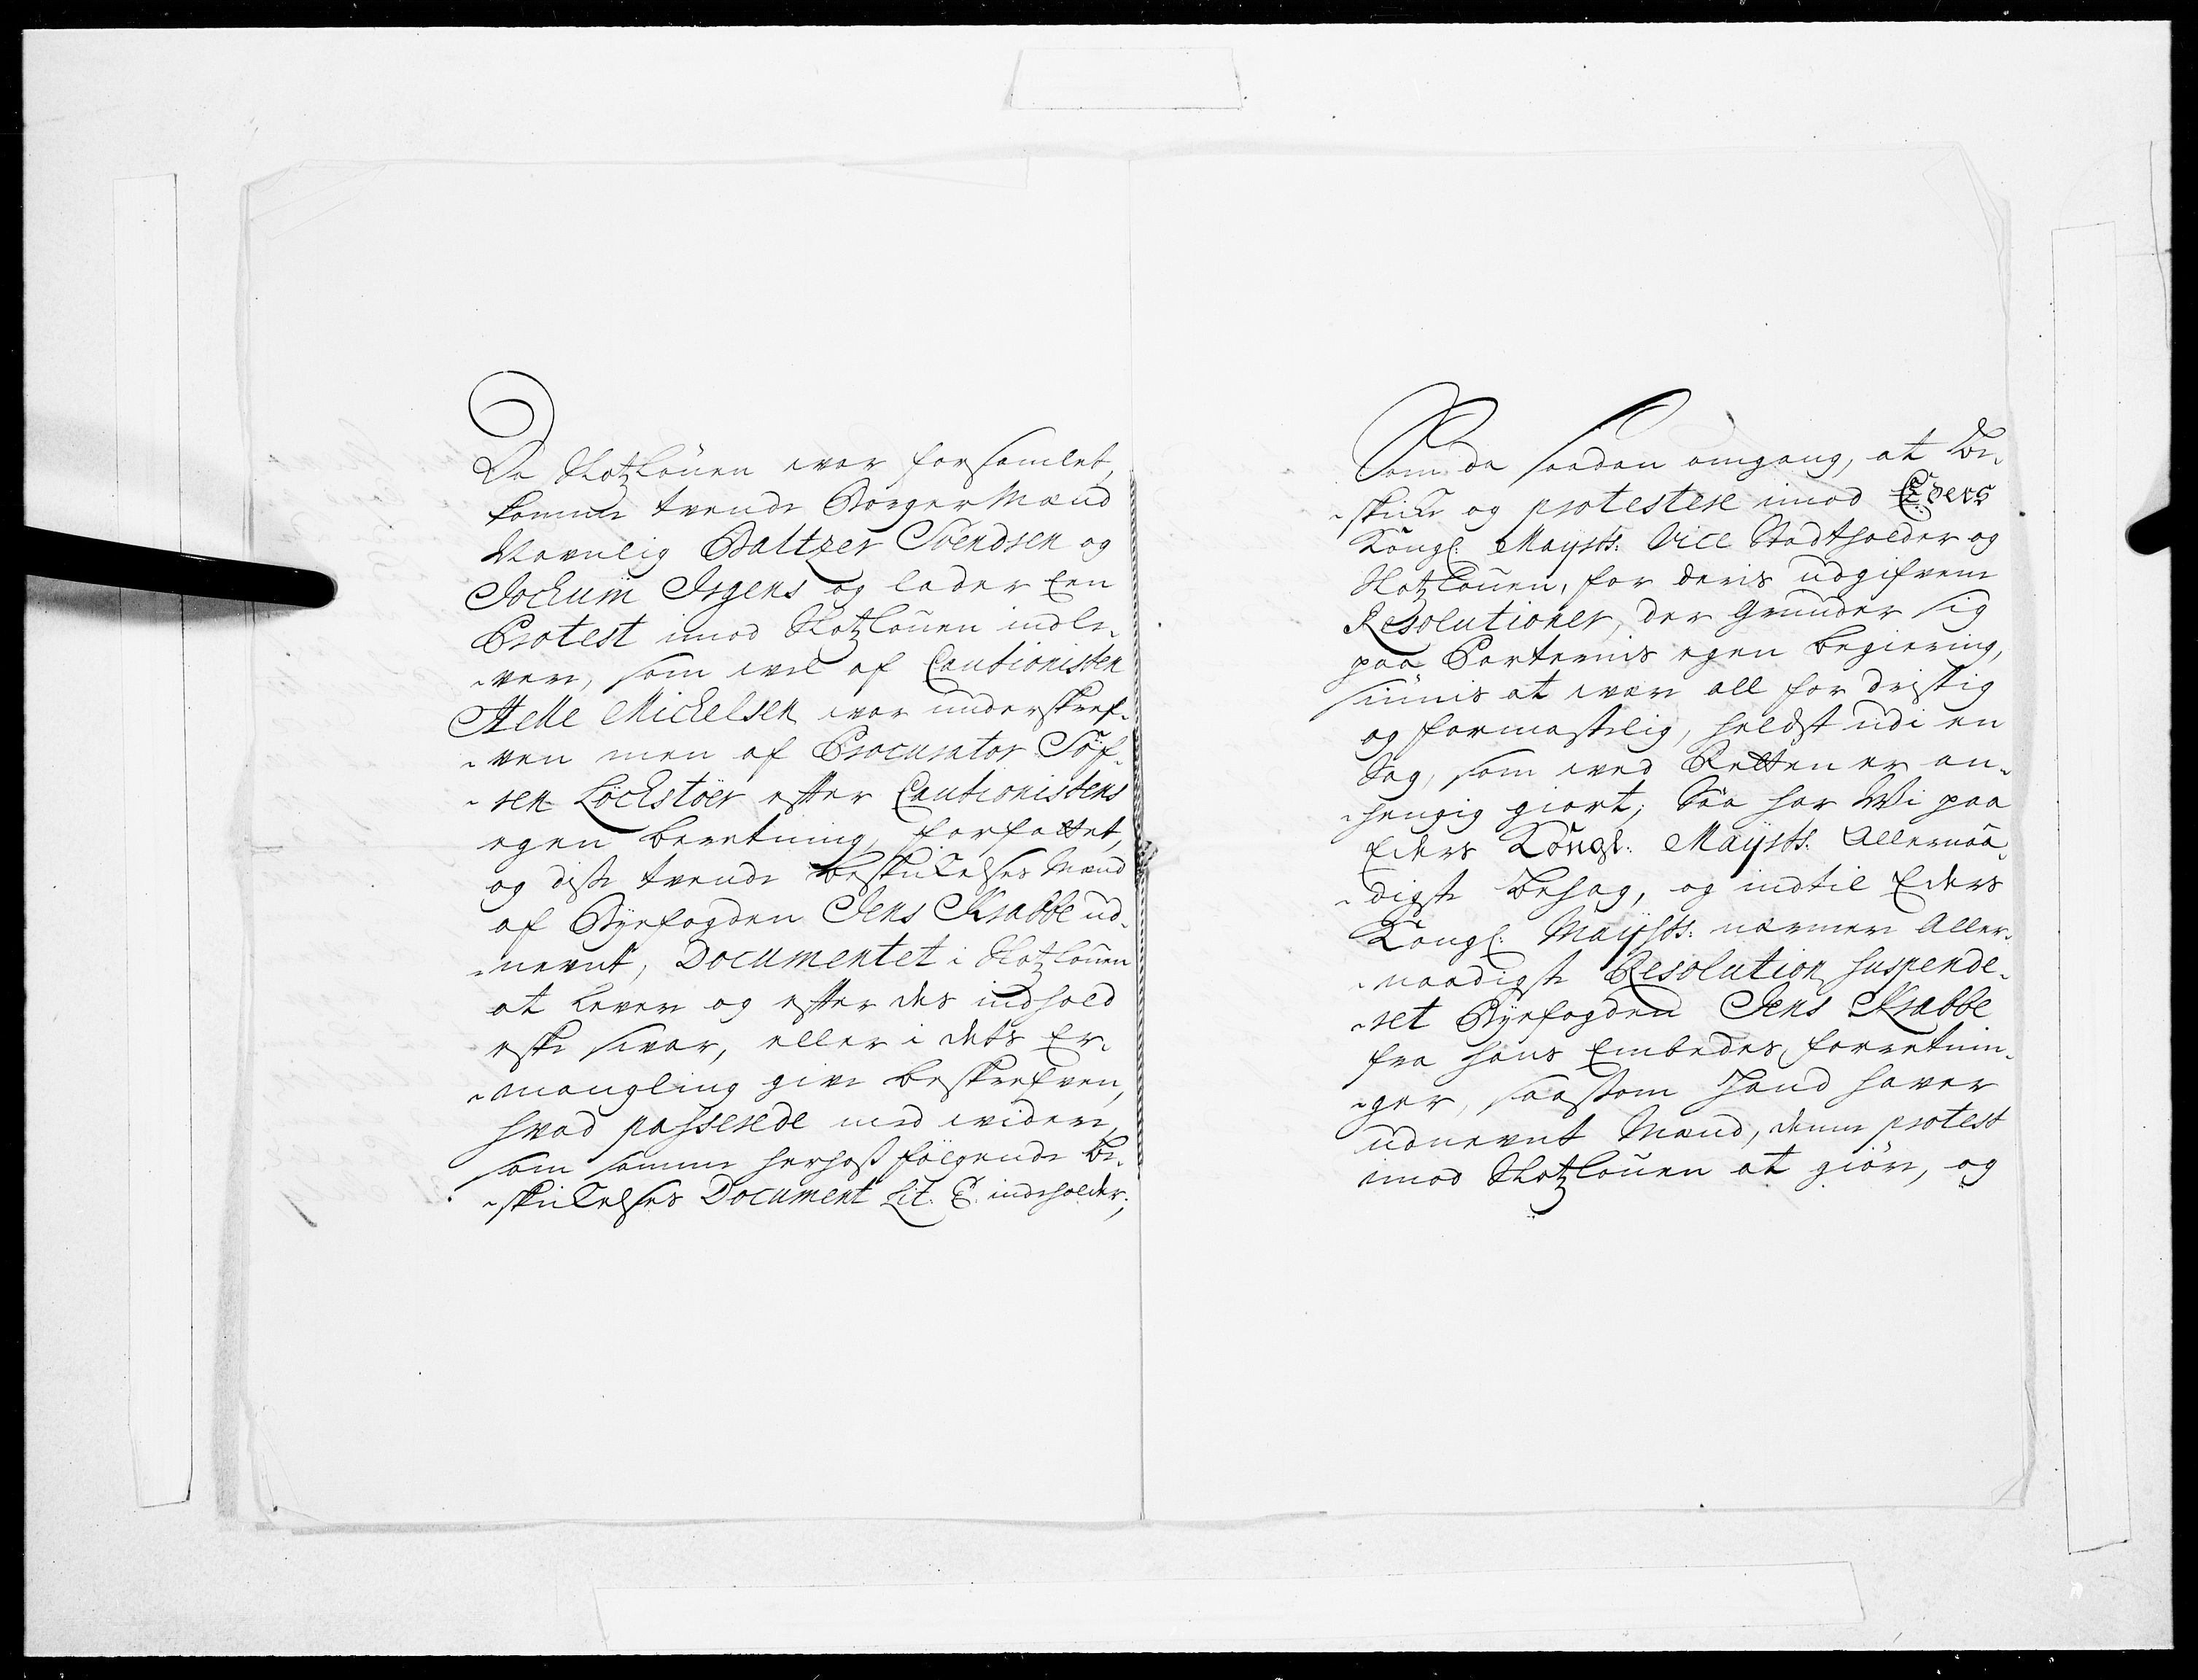 Da Slotzlouen war forsamlet,
komme tvende Borger Mænd
Navnlig Baltzer Svendsen og
Jochum Irgens og lader Een
Protest imod Slotzlouen indle¬
¬vere, som vel af Cautionisten
Helle Michelsen war underskref¬
¬ven men af Procurator Söf¬
¬ren Löchstöer efter Cautionistens
egen beretning, forfattet,
og diße tvende Beskikelses Mænd
af Byefogden Jens Krabbe ud¬
¬nevnt, Documentet i Slotzlouen
at levere og efter des indhold
eske svar, eller i dets Er¬
¬mangling give beskrefven,
hvad passerede med videre,
som samme herhoß fölgende be¬
¬skikelses Document Lit. E. indeholder;
Som da saadan omgang, at be¬
¬skike og protestere imod Eders
Kongl: Maysts: Vice Stadtholder og
Slotzlouen, for deris udgifvene
Resolutioner, der Grunder sig
paa Parternis egen begiering,
siunis at være all for dristig
og formastelig, heldst udi en
Sag, som wed Retten er an¬
¬hengig giort; Saa har Wi paa
Eders Kongl: Maysts: Allernaa¬
¬digste behag, og indtil Eders
Kongl: Maysts: nærmere Aller¬
¬naadigste Resolution suspende¬
¬ret Byefogden Jens Krabbe
fra hans Embedes forretnin¬
¬ger, saasom Hand haver
udnevnt Mænd, denne protest
imod Slotzlouen at giöre, og